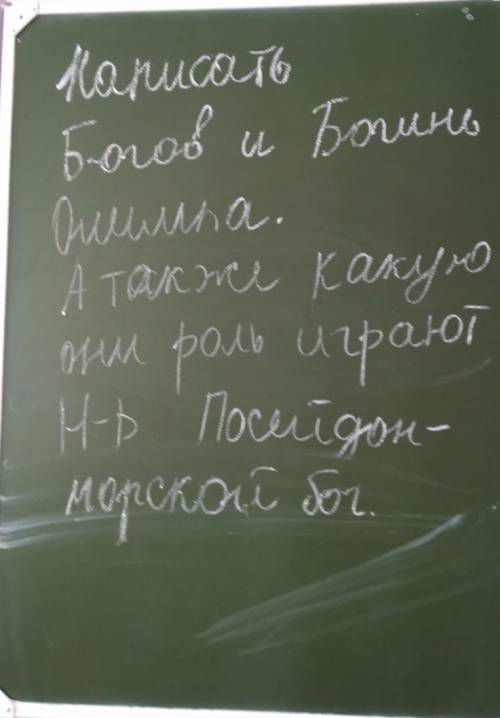 Написать
Богов и Богинь
Олимпа.
А также какую
они роль играют
Н-р Посейдон-
морской бог.